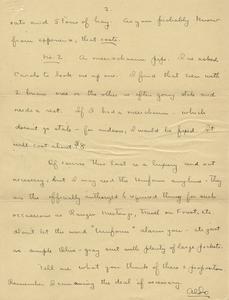 2.
oats and 5 tons of hay. As you probably know
from experience, that costs.
No. 2 A meerschaum pipe. I've asked
Canada to look me up one. I find that even with
2 briars one or the other is often going stale and
needs a rest. If I had a meerschaum - which
doesn't go stale - for indoors, I would be fixed. It
will cost about $8.
Of course this last is a luxury and not
necessary, but I may need the Uniform anyhow. They
are the officially authorized & required thing for such
occasions as Ranger Meetings, travel on Forest, etc.
Don't let the word "Uniform" alarm you - its just
as simple Olive-gray suit with plenty of large pockets.
Tell me what you think of these 2 propositions
Remember I am saving the deal of necessary